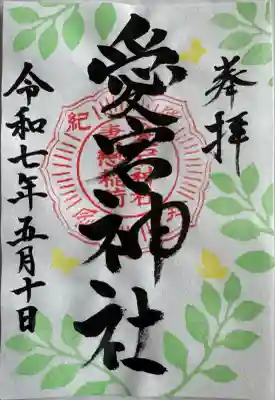 奉拝
愛宕神社
令和七年五月十日